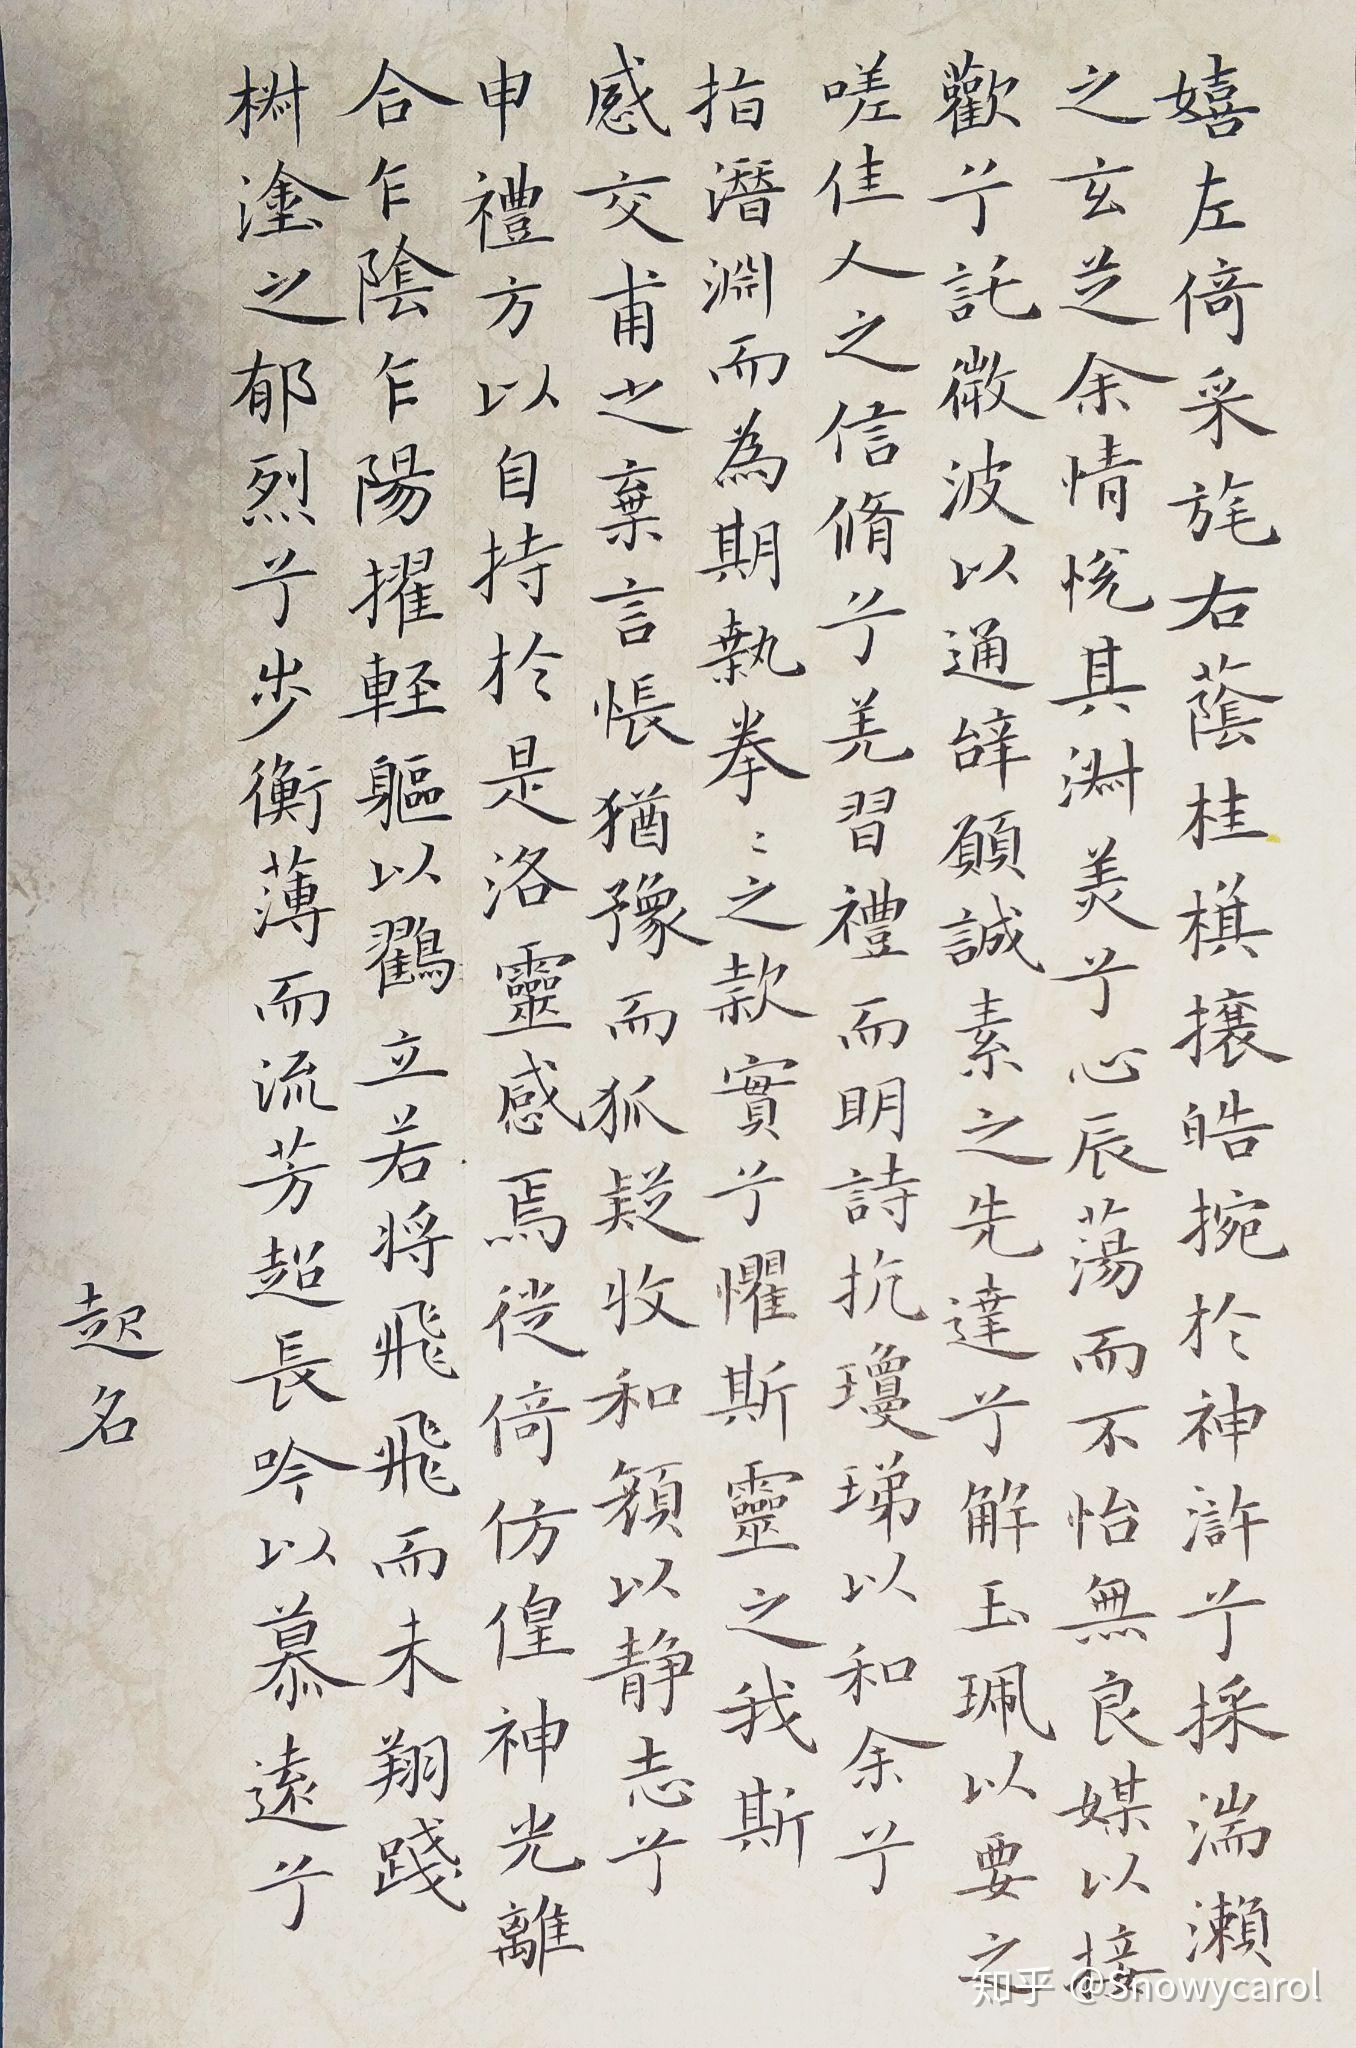 嬉左倚采旄右蔭桂棋攘皓捥於神滸兮採湍瀨
之玄芝余情悅其淑美兮心辰蕩而不怡無良媒以接
歡兮託微波以通辭願誠素之先達兮解玉珮以要之
嗟佳人之信脩兮羌習禮而明詩抗瓊珶以和余兮
指潛淵而為期執拳〻之款實兮懼斯靈之我斯
感交甫之棄言悵猶豫而狐疑收和顏以静志兮
申禮方以自持於是洛靈感焉徙倚仿偟神光離
合乍陰乍陽擢輕軀以鸐立若將飛飛而未翔踐
椒塗之郁烈兮步衡薄而流芳超長吟以慕遠兮
起名
知乎 @Snowycarol